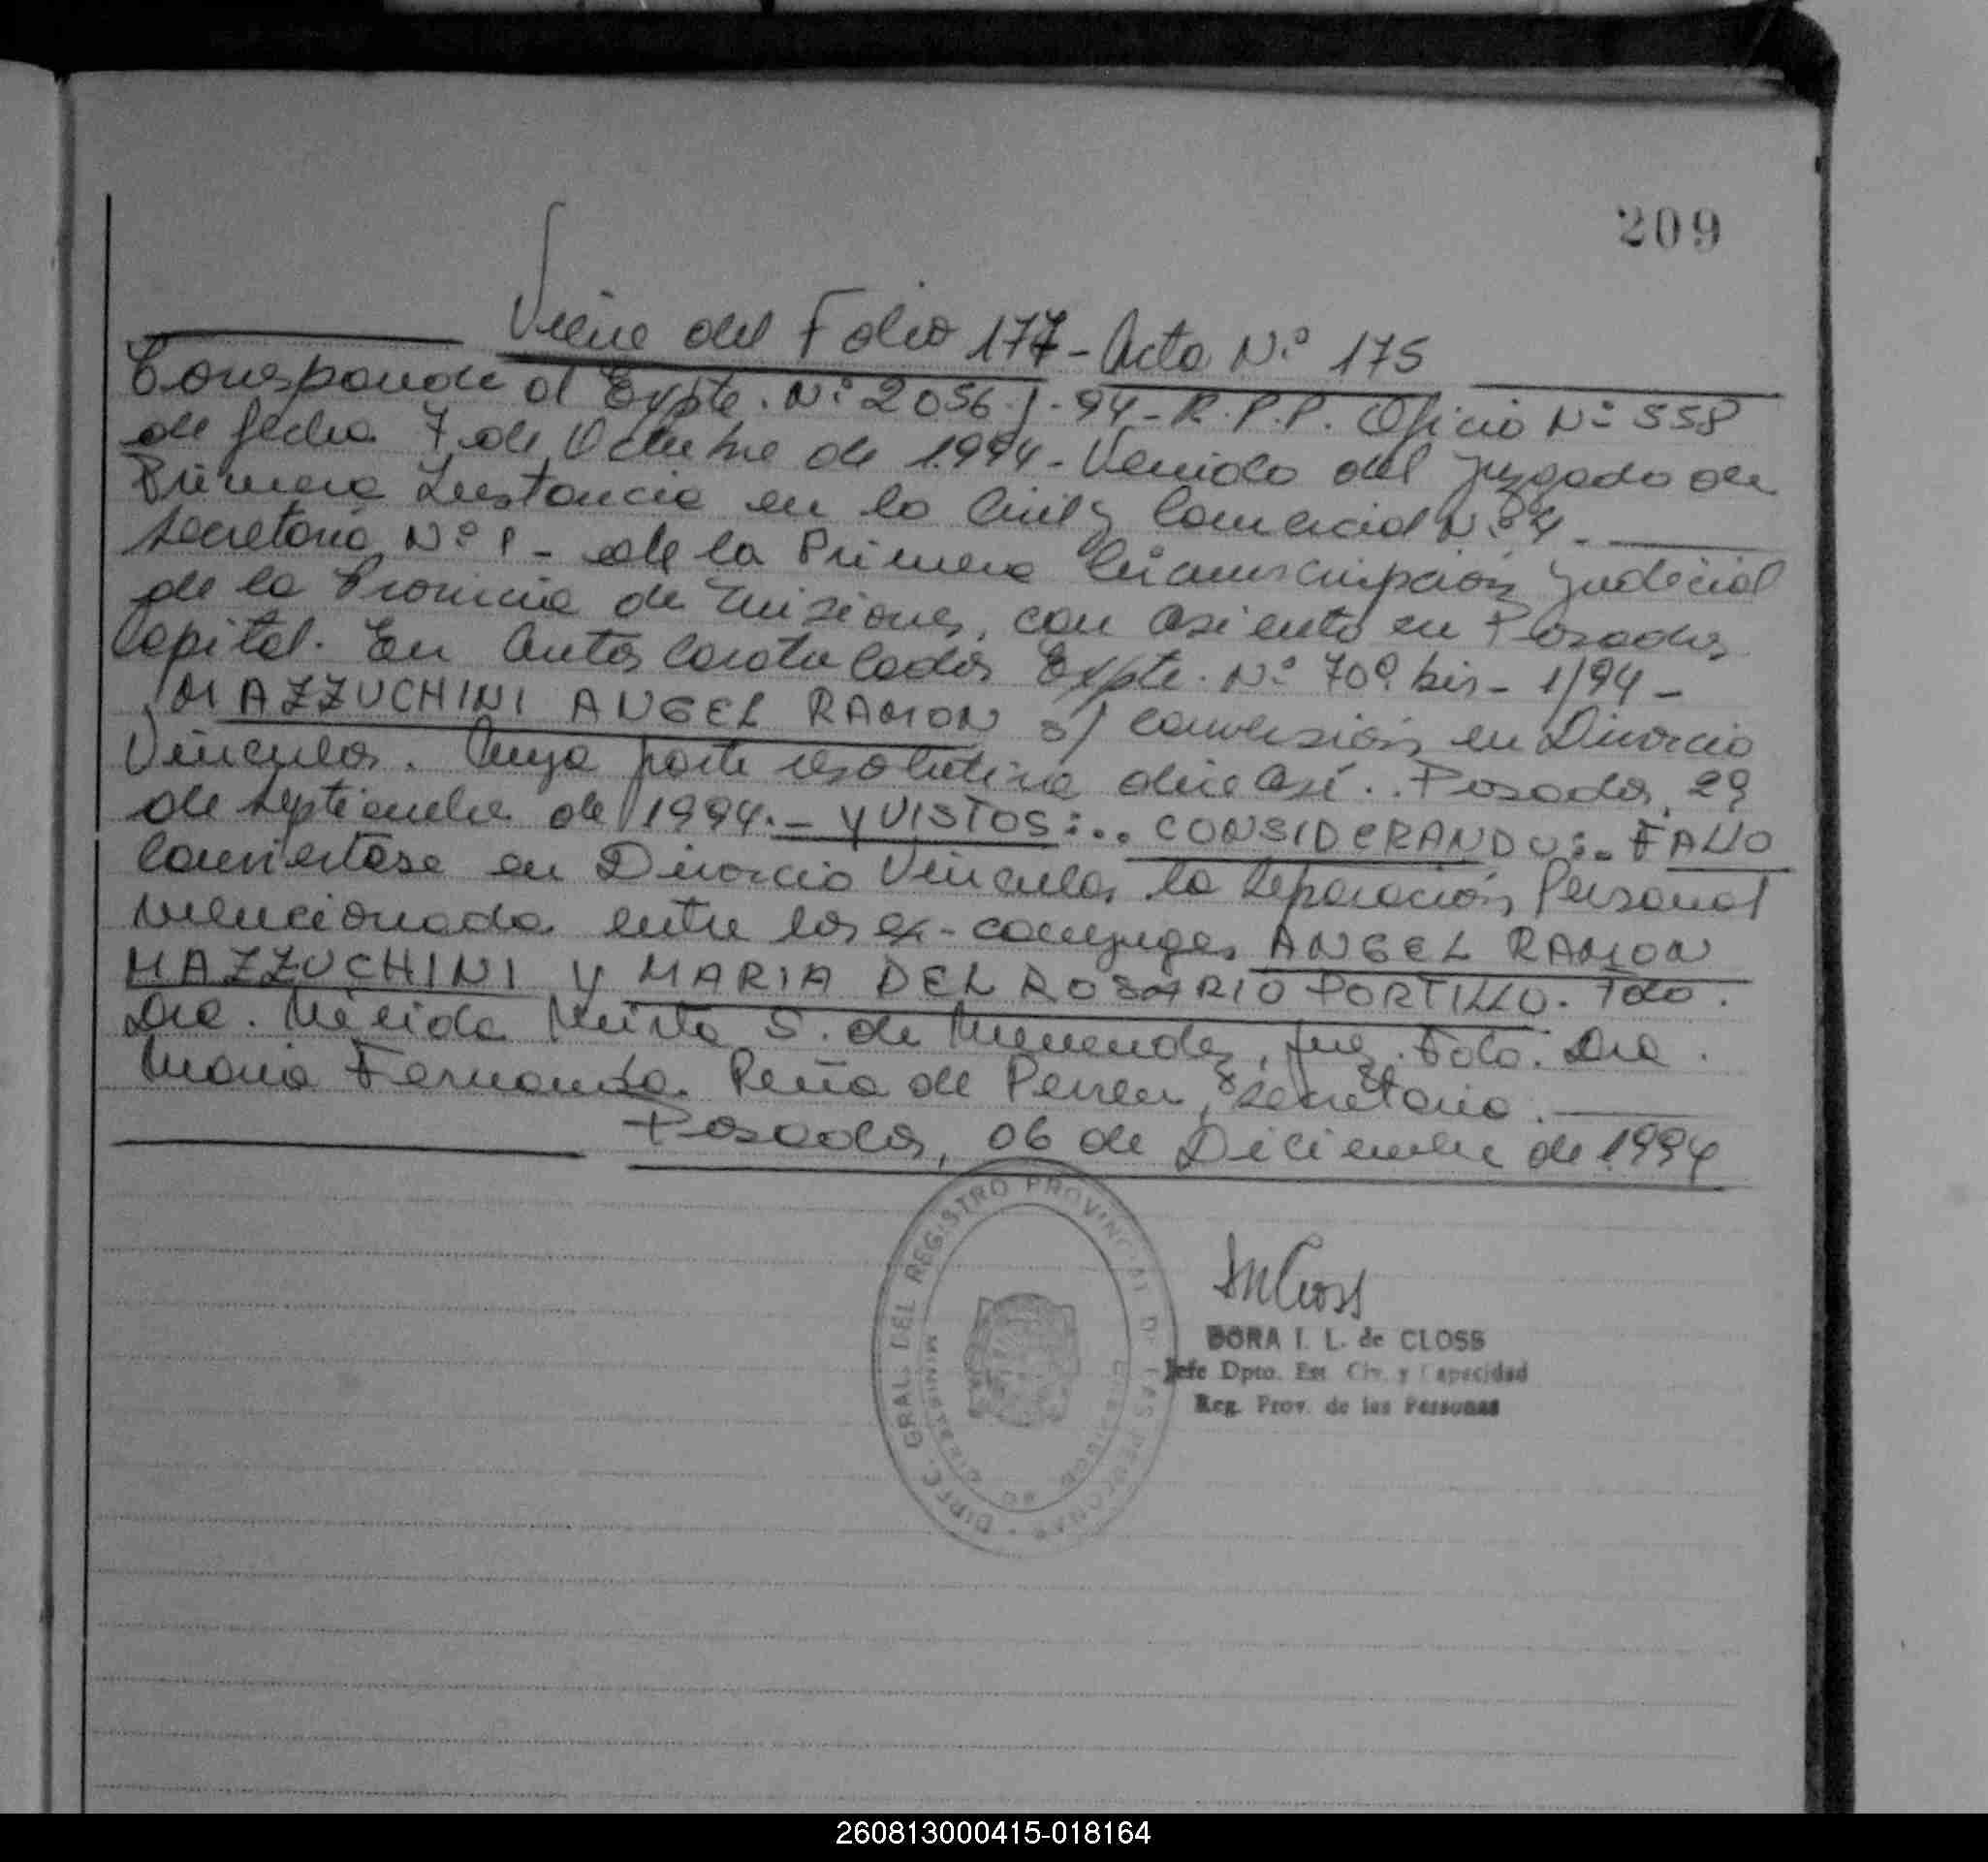 209
Viene del Folio 177 - Acta N° 175
Corresponde al Expte. N° 2056-J-94-R.P.P. Oficio N° 558
de fecha 7 de Octubre de 1.994 - Venido del Juzgado de
Primera Instancia en lo Civil y Comercial N° 4 -
Secretaria N° 1 - de la Primera Circunscripción Judicial
de la Provincia de Misiones, con asiento en Posadas
Capital. En Autos Caratulados Expte. N° 709 bis - 1/94 -
MAZZUCHINI ANGEL RAMON s/ conversión en Divorcio
Vincular. Cuya parte resolutiva dice así.. Posadas, 29
de Septiembre de 1994.- Y VISTOS:.. CONSIDERANDO:. FALLO
Conviertase en Divorcio Vincular la Separación Personal
mencionada entre los ex-conyuges ANGEL RAMON
MAZZUCHINI Y MARIA DEL ROSARIO PORTILLO. Fdo.
Dra. Mirta S. de Menendez, Juez. Fdo. Dra.
Maria Fernanda Peña de Perren, Secretaria.
Posadas, 06 de Diciembre de 1994
DIREC. GRAL. DEL REGISTRO PROVINCIAL DE LAS PERSONAS
MINISTERIO DE GOBIERNO
DORA I. L. de CLOSS
Jefe Dpto. Est. Civ. y Capacidad
Reg. Prov. de las Personas
260813000415-018164